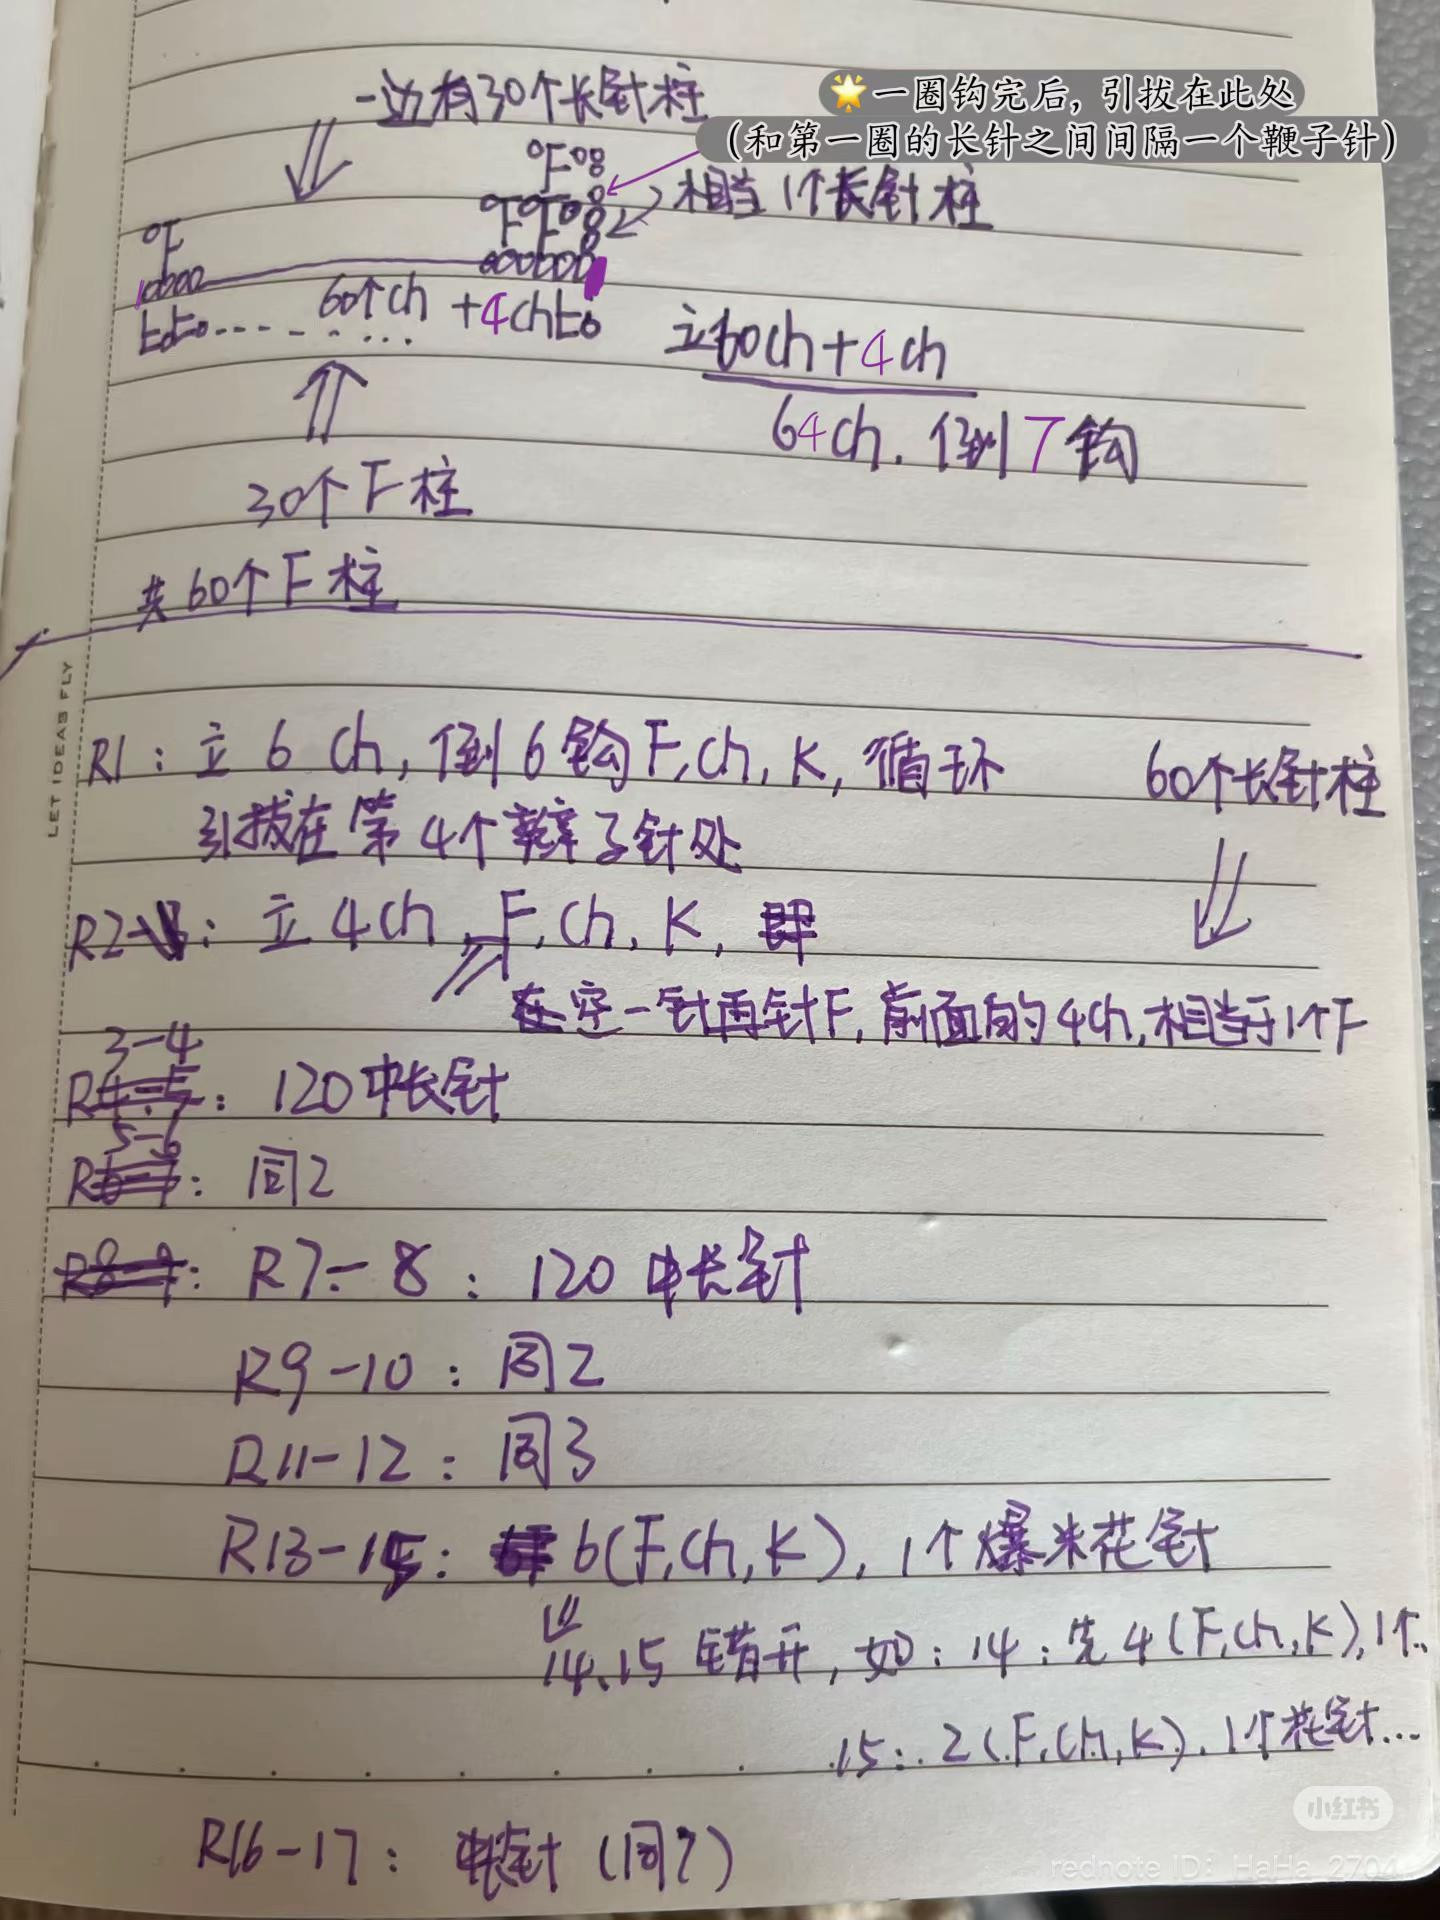 一边有30个长针柱
🌟一圈钩完后, 引拔在此处
(和第一圈的长针之间间隔一个鞭子针)
相当1个长针柱
60个ch +4ch
立60ch+4ch
64ch. 倒7钩
30个F柱
共60个F柱
LET IDEAS FLY
R1: 立6ch, 倒6钩F, ch, K, 循环
引拔在第4个辫子针处
60个长针柱
R2: 立4ch, F, ch, K,
空一针再针F, 前面的4ch, 相当于1个F
R3-4: 120中长针
R5-6: 同2
R7-8: 120中长针
R9-10: 同2
R11-12: 同3
R13-15: 6(F, ch, K), 1个爆米花针
14、15错开, 如: 14: 先4(F, ch, K), 1个..
15: 2(F, ch, K). 1个花针...
R16-17: 中长针 (同7)
小红书
rednote ID: HaHa_2704